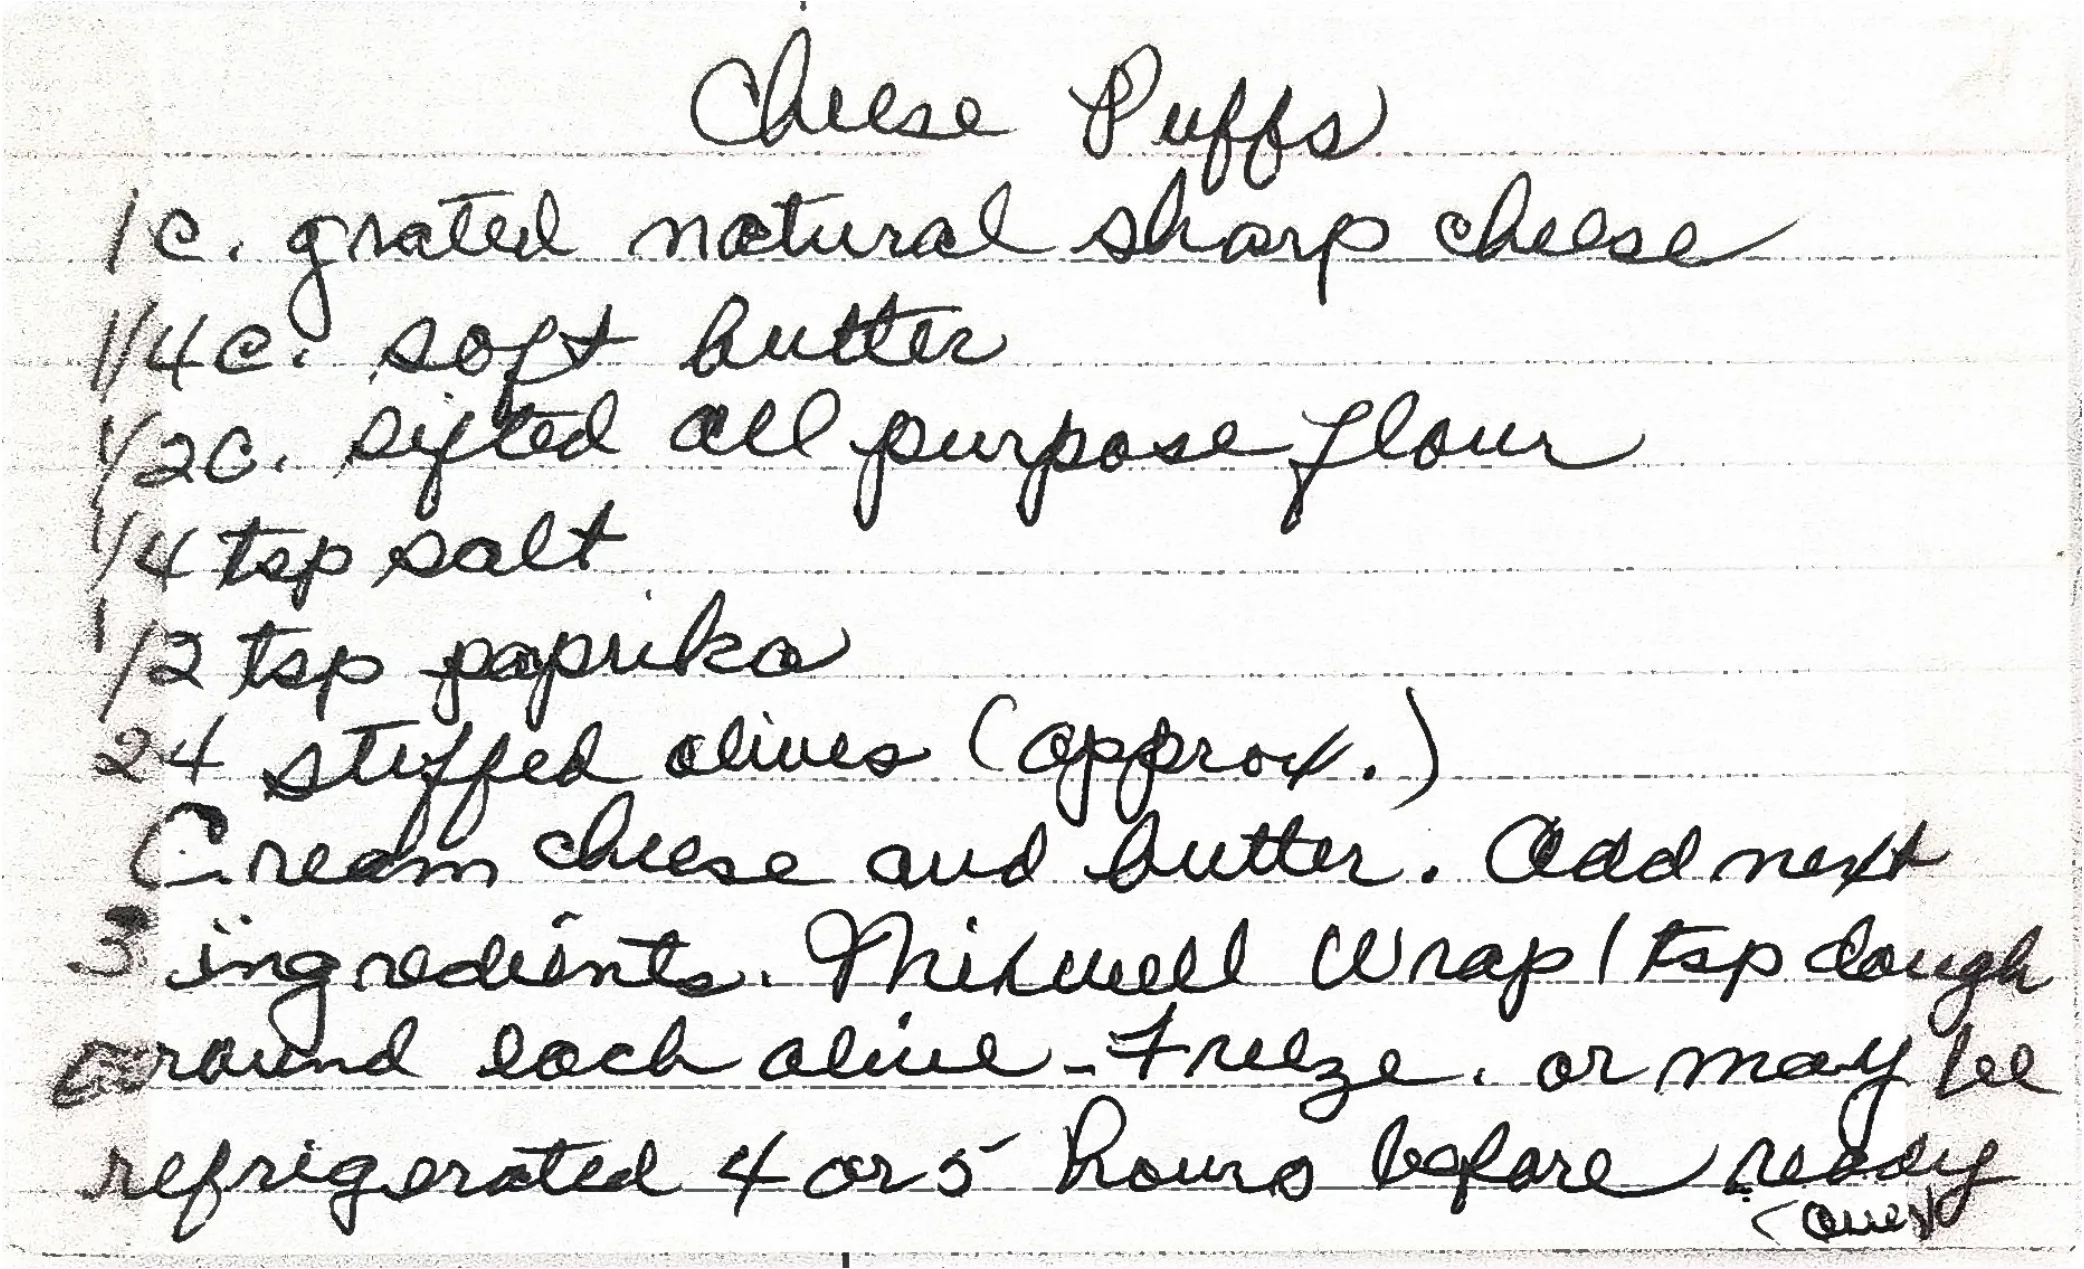 Cheese Puffs
1 c. grated natural sharp cheese
1/4 c. soft butter
1/2 c. sifted all purpose flour
1/4 tsp salt
1/2 tsp paprika
24 stuffed olives (approx.)
Cream cheese and butter. Add next
3 ingredients. Mix well Wrap 1 tsp dough
around each olive - Freeze. or may be
refrigerated 4 or 5 hours before ready
(over)